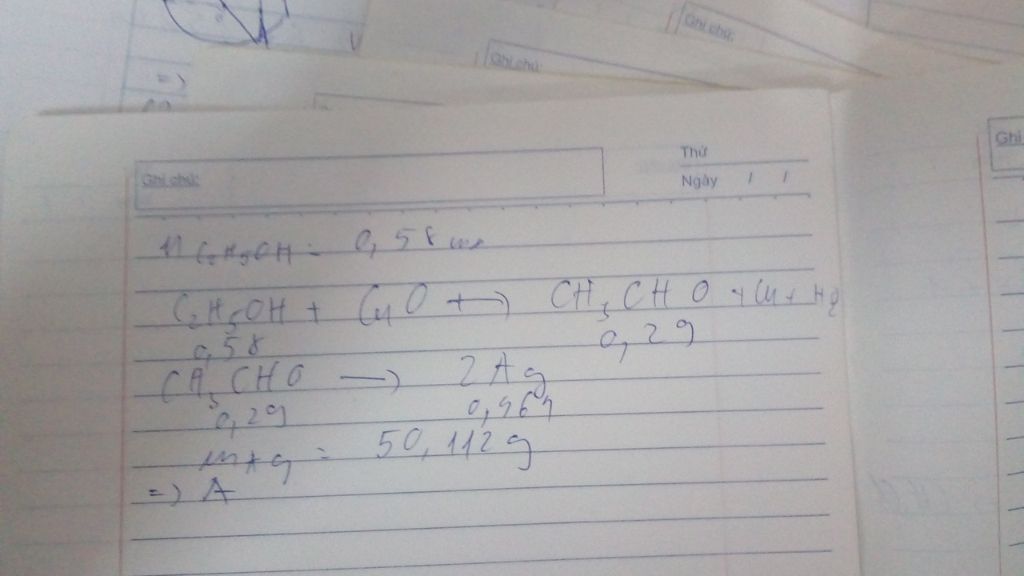 =)
Ghi chú:
Ghi chú:
Thứ
Ghi chú:
Ngày / /
Ghi
n C2H5OH = 0,58 mol
C2H5OH + CuO → CH3CHO + Cu + H2O
0,58 0,29
CH3CHO → 2Ag
0,29 0,464
mAg = 50,112g
=) A